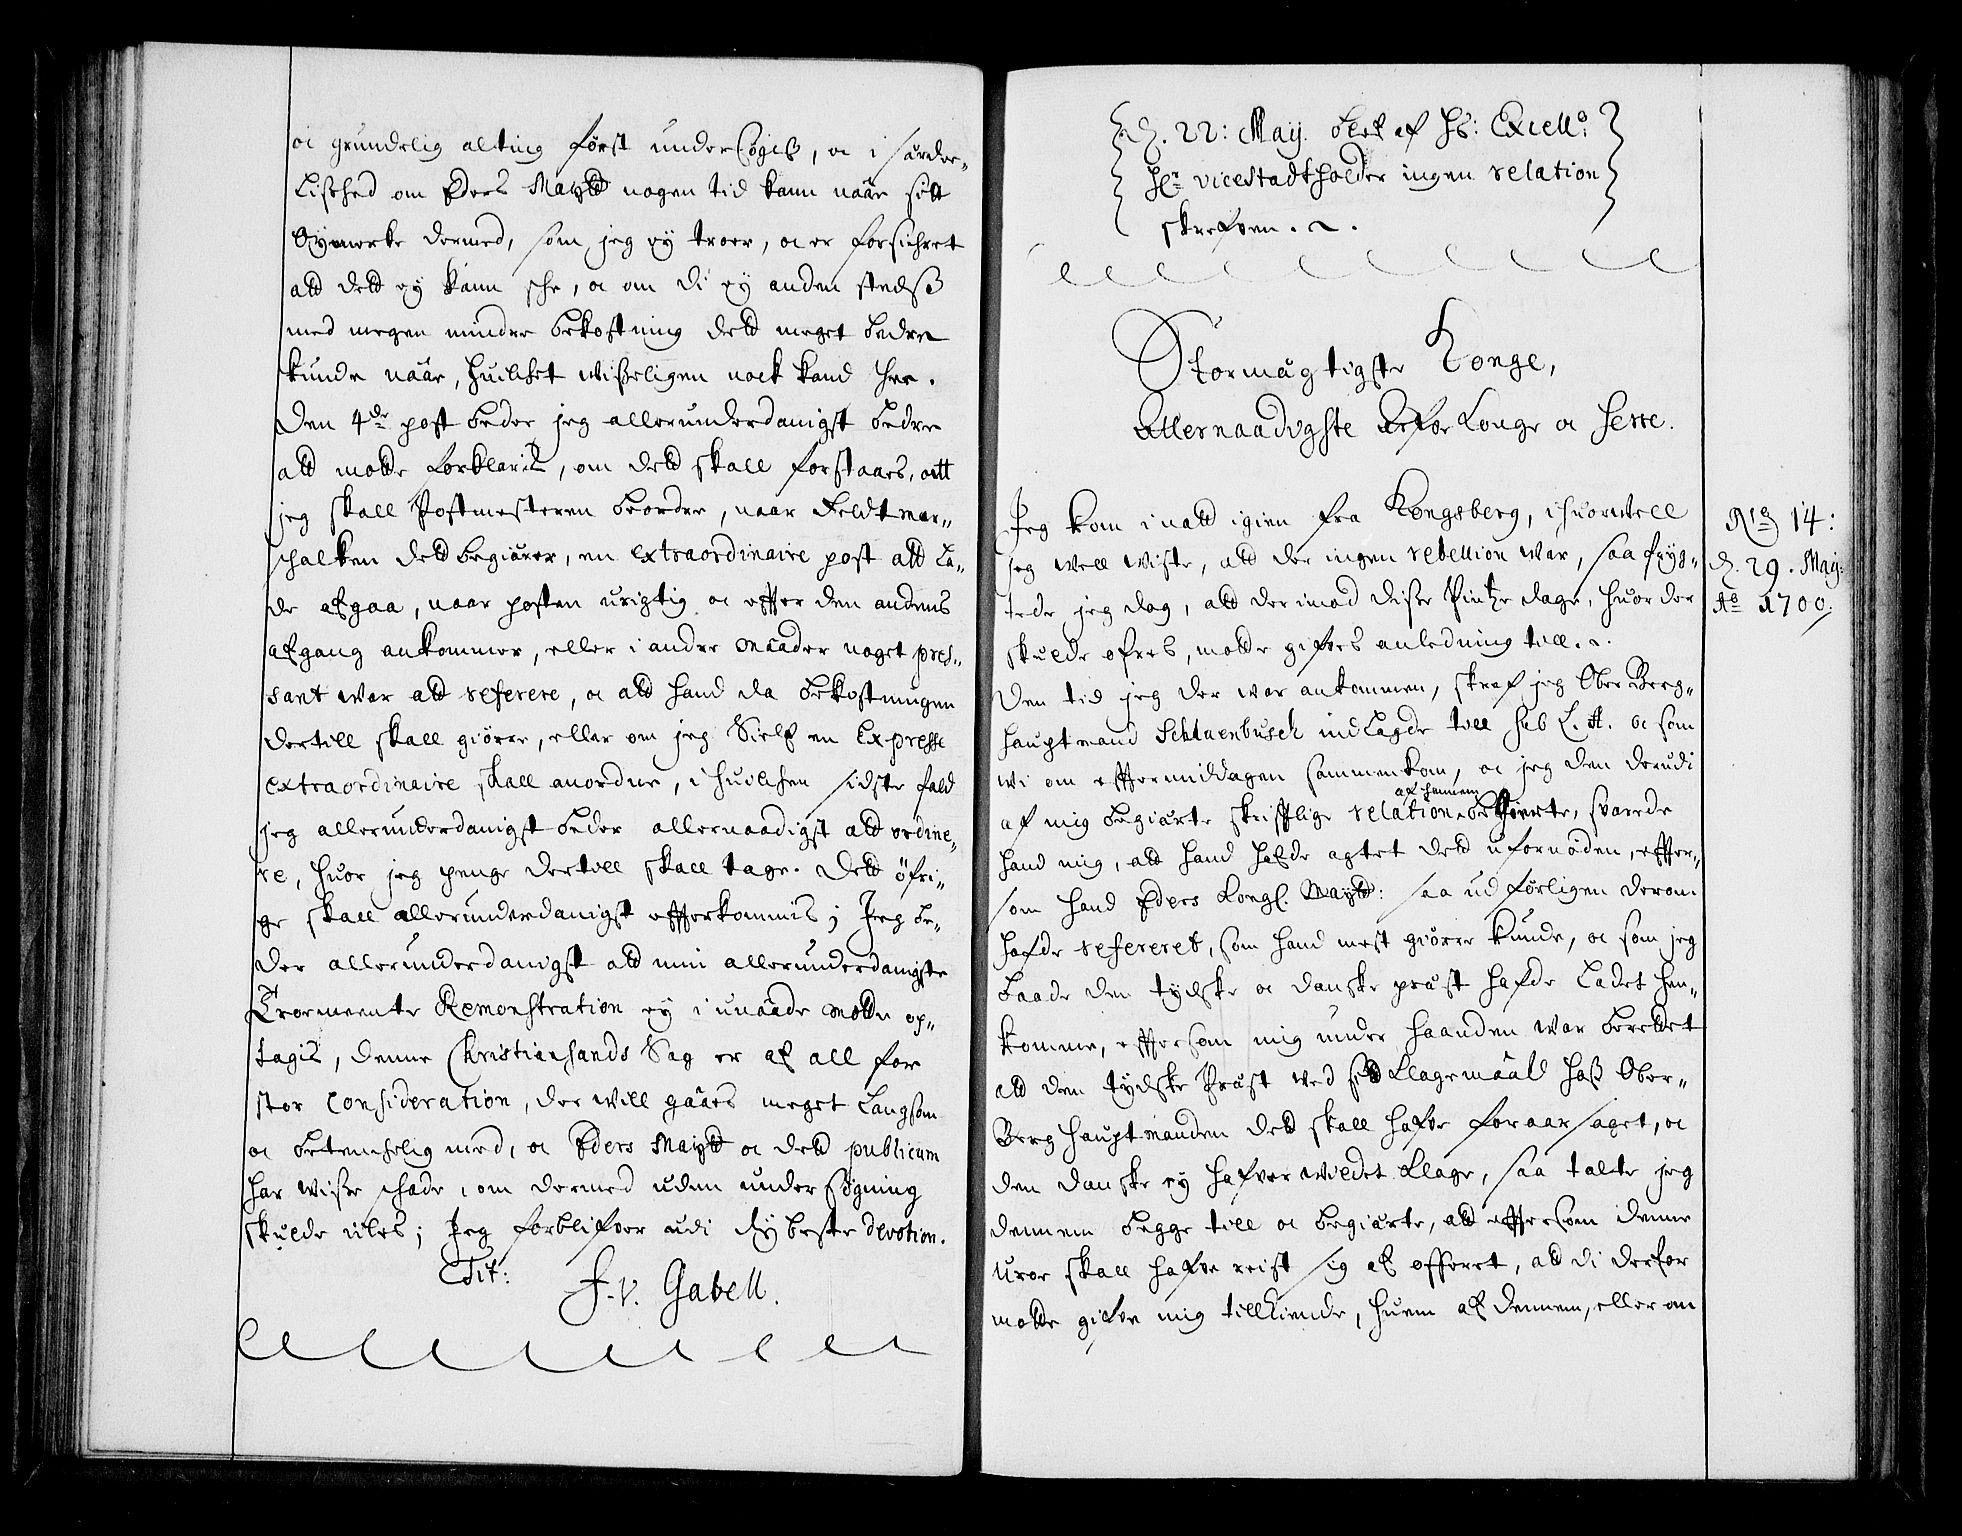 oc grundelig alting først undersøgis, oc i særde-
lished om Eders Mayst. nogen tid kann nåår sitt
Øymerke dermed, som jeg ey troer, oc er forsichret
att dett ey kann sche, oc om di ey anden stedß
med megen mindre bekostning dett meget bedre
kunde nåår, huilchet wißeligen nock kand see.
Den 4de post beder jeg allerunderdanigst bedre
att motte forklaris, om dett skall forstaaes, att
jeg skall Postmesteren beordre, naar Feldtmar-
schalken dett begiærer, en extraordinaire post att la-
de afgaa, naar posten urigtig oc efter den andens
afgang ankommer, eller i andre Maader noget pres-
sant war att referere, oc att hand da bekostningen
dertill skall giørre, eller om jeg Sielf en Expresse
extraordinaire skall anordne, i huilchen sidste fald
jeg allerunderdanigst beder allernaadigst att ordine-
re, huor jeg penge dertill skall tage. Dett öfri-
ge skall allerunderdanigst efterkommis; Jeg be-
der allerunderdanigst att min allerunderdanigste
Troemeente Remonstration ey i unåade motte op-
tagis, denne Christiansands Sag er af all for
stor Consideration, der will gåaes meget langsom
oc betenchelig med, oc Eders Mayst oc dett publicum
har wisse schade, om dermed uden undersøgning
skulde iiles; Jeg forblifver udi dybeste devotion.
Tit:
F. V. Gabell.
d. 22: May. blef af Hs: Excell:
Hr vicestadtholder ingen relation
skrefven.
Stormægtigste Konge,
Allernaadigste Arfve Konge oc Herre.
No 14:
d. 29. May:
Ao 1700.
Jeg kom i natt igien fra Kongsberg, ihuorvell
jeg well wiste, att der ingen rebellion war, saa fryg-
tede jeg dog, att derimod disse Pintze dage, huor der
skulde ofres, motte gifves anledning till.
Den tid jeg der war ankommen, skref jeg Ober Berg-
hauptmand Schlaenbusch indlagde till sub L. A. oc som
wi om eftermiddagen sammenkom, oc jeg den derudi
af mig begiærte skriftlige relation af hannem begierte, svarede
hand mig, att hand hafde agtet dett ufornöden, efter-
som hand Eders Kongl. Mayst: saa udførligen derom
hafde refereret, som hand mest giørre kunde, oc som jeg
baade den tydske oc danske præst hafde ladet hen-
komme, eftersom mig under haanden war berettet
att den tydske Præst ved sitt Klagemåål hoß Ober-
Berg Hauptmanden dett skall hafve foraarsaget, oc
den danske ey hafver willet klage, saa talte jeg
dennem begge till oc begiærte, att eftersom denne
Uroe skall hafve reist sig af offeret, att di derfor
motte gifve mig tillkiende, huem af dennem, eller om